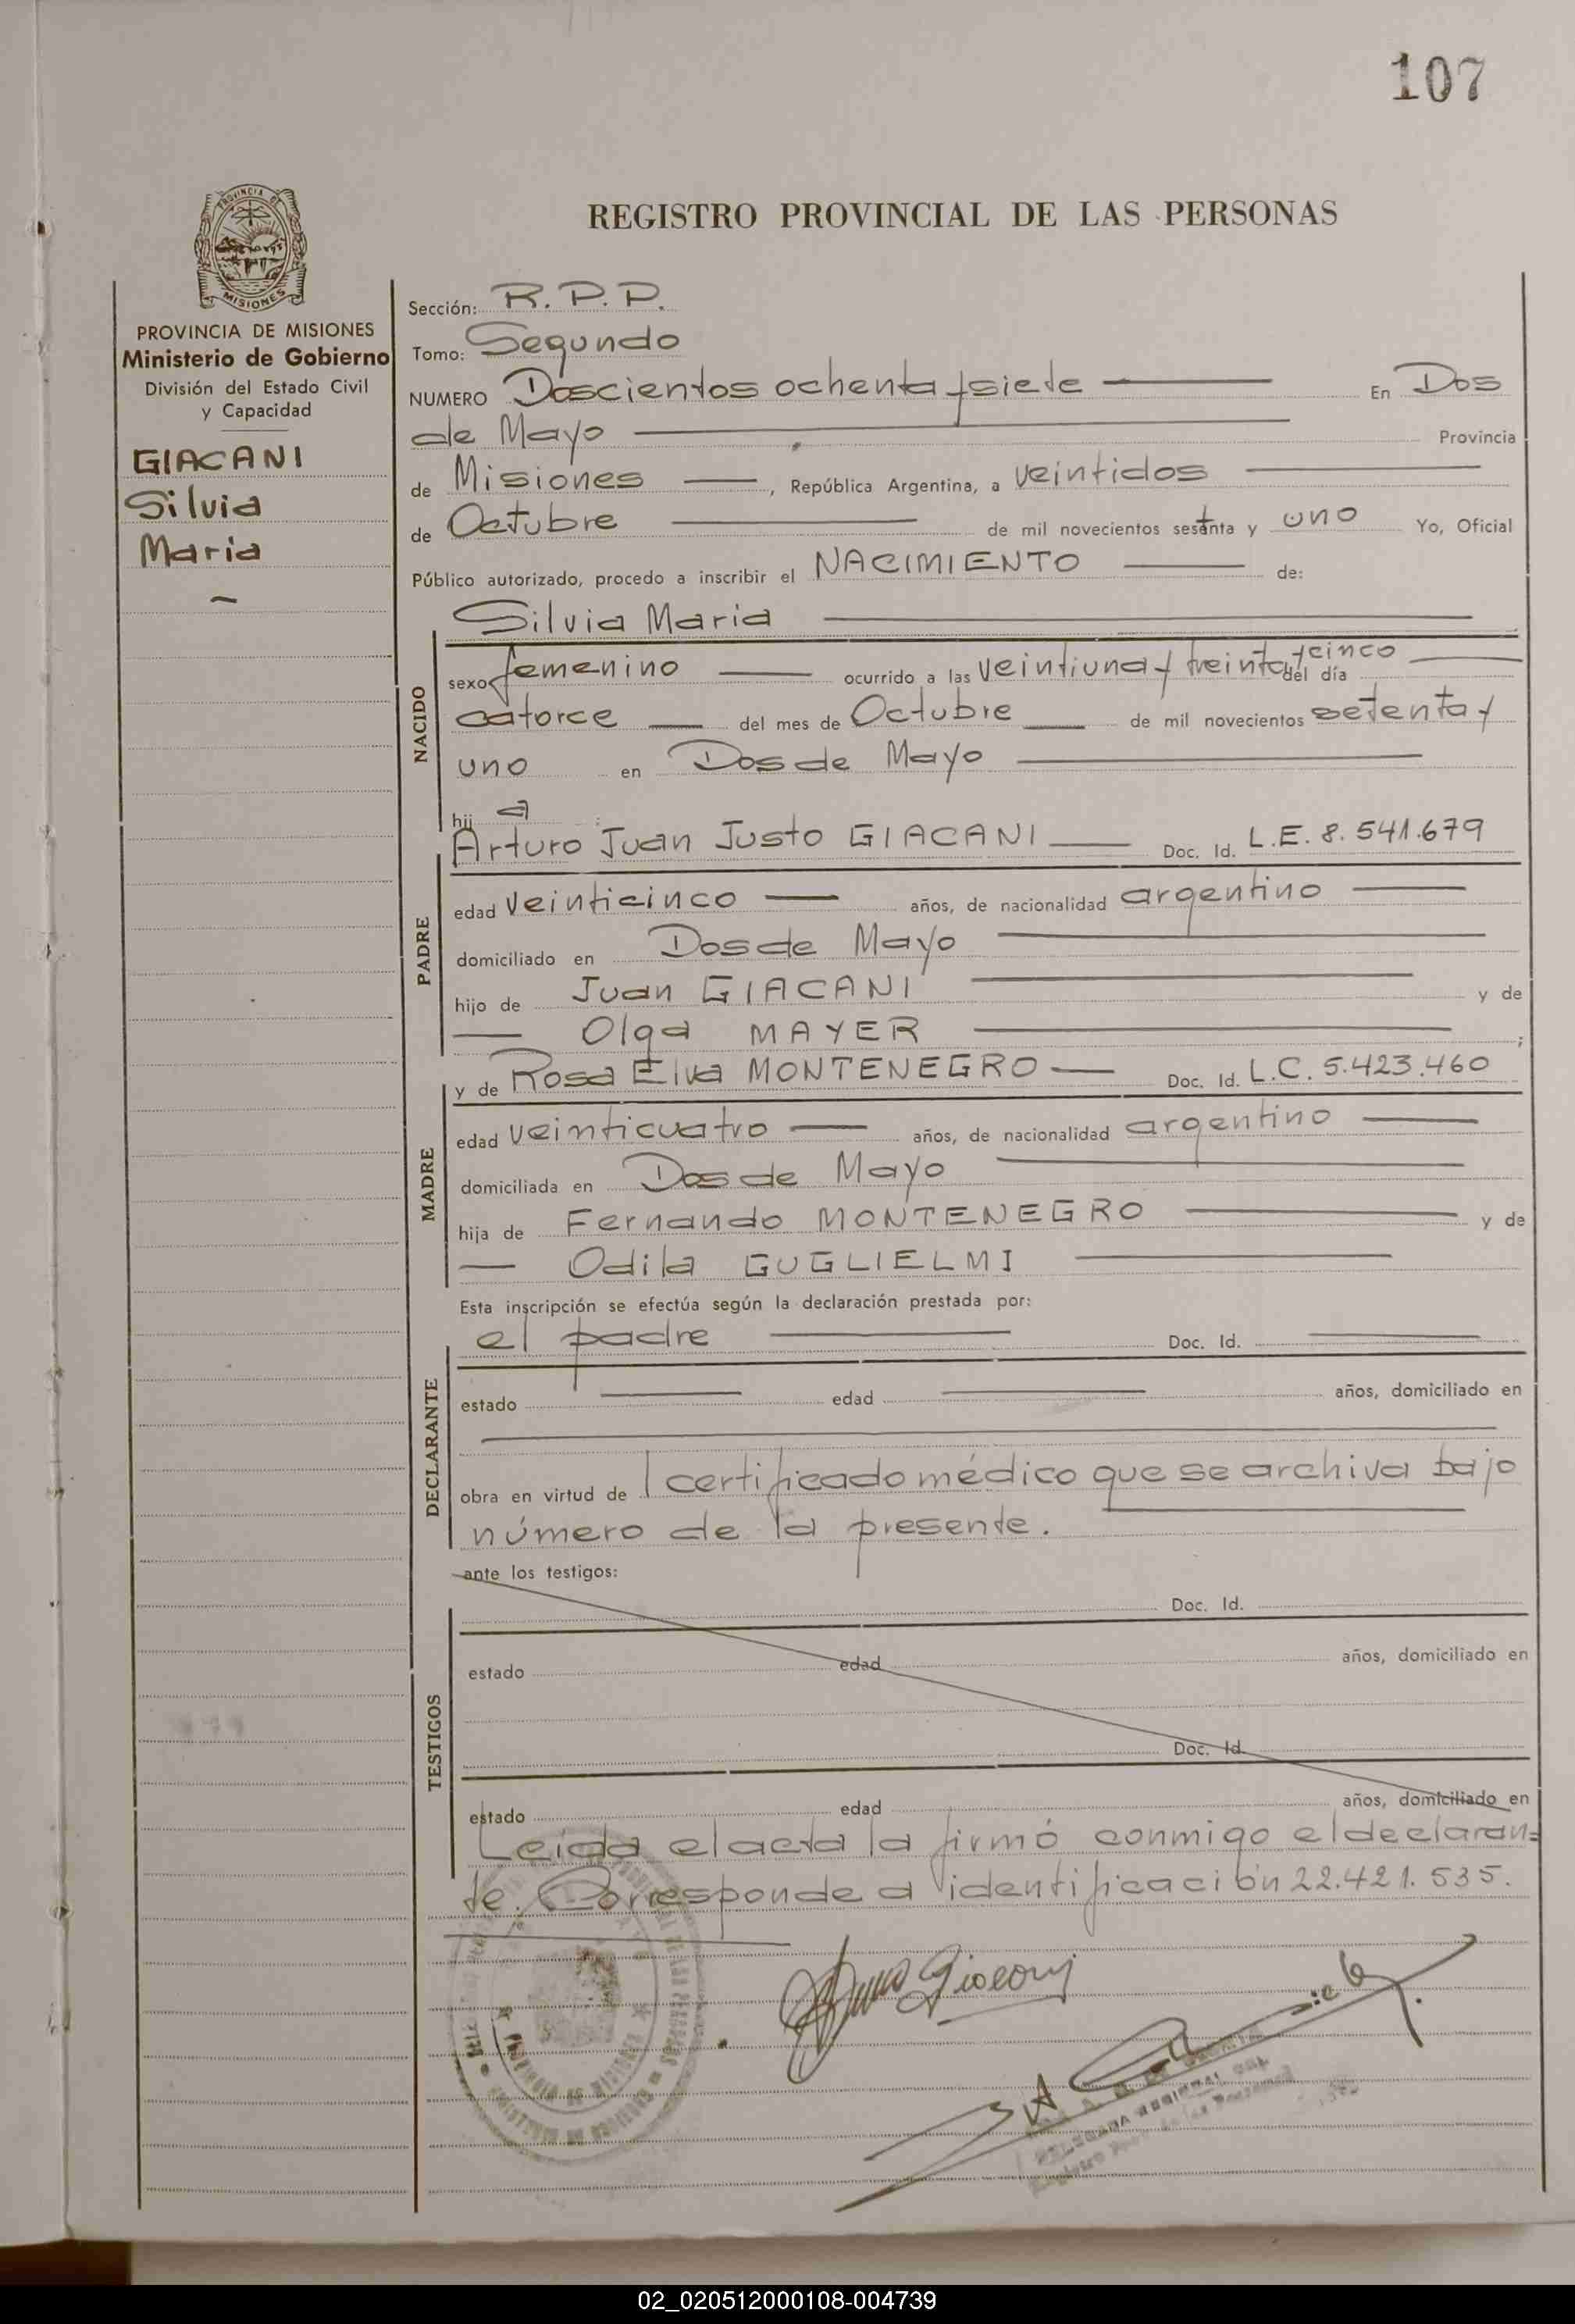 107
PROVINCIA DE
MISIONES
REGISTRO PROVINCIAL DE LAS PERSONAS
PROVINCIA DE MISIONES
Ministerio de Gobierno
División del Estado Civil
y Capacidad
GIACANI
Silvia
Maria
Sección: R.P.P.
Tomo: Segundo
NUMERO Doscientos ochenta y siete — En Dos
de Mayo — Provincia
de Misiones —, República Argentina, a veintidos —
de Octubre — de mil novecientos setenta y uno Yo, Oficial
Público autorizado, procedo a inscribir el NACIMIENTO — de:
Silvia Maria —
NACIDO
sexo femenino — ocurrido a las veintiuna y treinta y cinco — del día
catorce — del mes de Octubre — de mil novecientos setenta y
uno en Dos de Mayo —
hij a :
Arturo Juan Justo GIACANI — Doc. Id. L.E. 8.541.679
PADRE
edad veinticinco — años, de nacionalidad argentino —
domiciliado en Dos de Mayo —
hijo de Juan GIACANI — y de
— Olga MAYER — ;
y de Rosa Elva MONTENEGRO — Doc. Id. L.C. 5.423.460
MADRE
edad veinticuatro — años, de nacionalidad argentino —
domiciliada en Dos de Mayo —
hija de Fernando MONTENEGRO — y de
— Odila GUGLIELMI —
Esta inscripción se efectúa según la declaración prestada por:
el padre — Doc. Id. —
DECLARANTE
estado — edad — años, domiciliado en
—
obra en virtud de l certificado médico que se archiva bajo
número de la presente.
ante los testigos:
Doc. Id.
TESTIGOS
estado edad años, domiciliado en
Doc. Id.
estado edad años, domiciliado en
Leida el acta la firmó conmigo el declaran=
te. Corresponde a identificación 22.421.535.
Giacani
02_020512000108-004739